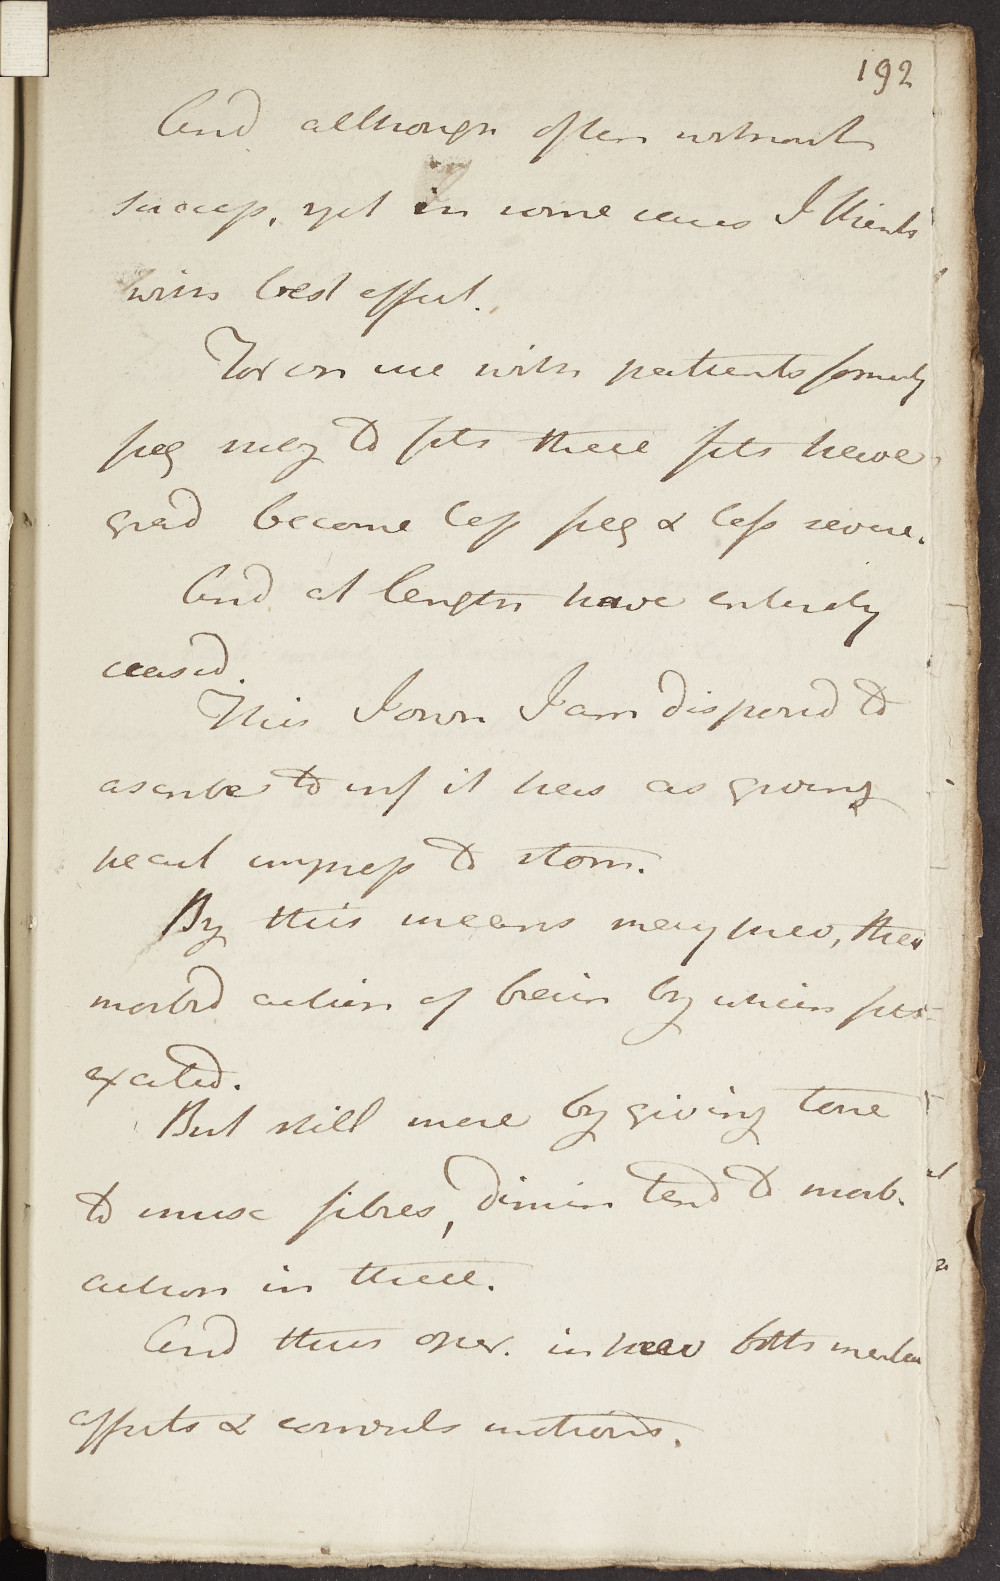 192
And although often without
success, yet in some cases I think
with best effect.
For on use with patients formerly
freq subj to fits these fits have
grad become less freq & less severe.
And at length have entirely
ceased.
This I own I am disposed to
ascribe to inf it has as giving
pecul impress to stom.
By this means may prev, that
morbid action of brain by which fits
excited.
But still more by giving tone
to musc fibres, dimin tend to morb.
action in these.
And thus oper. in prev both
effects & convuls motions.